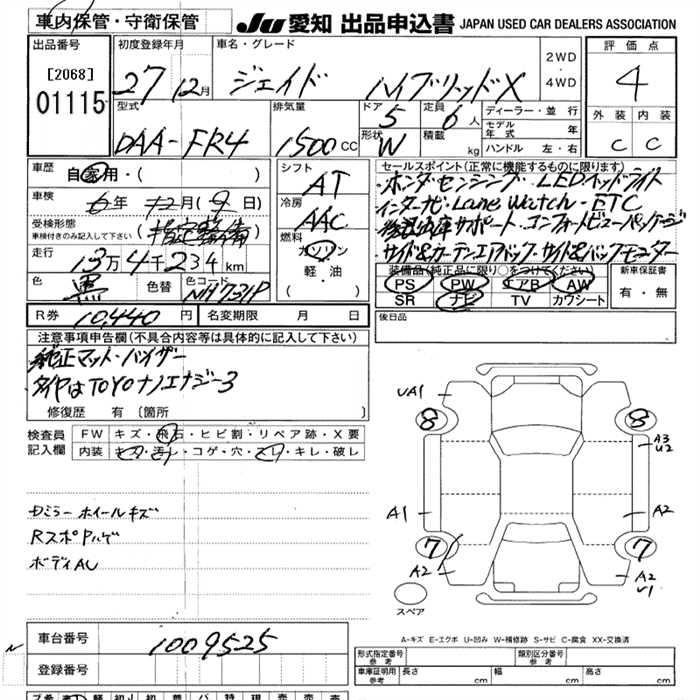 車内保管・守衛保管
JU 愛知 出品申込書 JAPAN USED CAR DEALERS ASSOCIATION
出品番号
[2068]
01115
初度登録年月
27年12月
車名・グレード
ジェイド ハイブリッドX
2WD・4WD
評価点
4
外装 内装
C C
型式
DAA-FR4
排気量
1500 CC
ドア 5
定員 6人
形状 W
積載 kg
ディーラー・並行
モデル年式 年
ハンドル 左・右
車歴
自家用・( )
車検
6年 12月(9日)
受検形態
車検付きのみ記入して下さい
(指定整備)
走行
13万4千234km
色 黒 色替 色コード NH731P
シフト AT
冷房 AAC
燃料
ガソリン
軽・油
( )
セールスポイント(正常に機能するものに限ります)
・ホンダ・センシング・LEDヘッドライト
インターナビ・Lane Watch・ETC
サポート・コンフォートビューパッケージ
・サイド&カーテンエアバック・サイド&バックモニター
装備品(純正品に限り○をつけてください)
PS PW エアB AW
SR ナビ TV カワシート
新車保証書
有・無
R券 10,440円 名変期限 月 日
後日品
注意事項申告欄(不具合内容等は具体的に記入して下さい)
純正マット・バイザー
タイヤはTOYOナノエナジー3
修復歴 有〔箇所 〕
検査員記入欄
FW キズ・飛石・ヒビ割・リペア跡・X要
内装 キズ・汚レ・コゲ・穴・スレ・キレ・破レ
ミラー ホイールキズ
ボディAU
UA1
8 8
A3
U2
A1 A2
7 7
A2 A2
U1
スペア
A-キズ E-エクボ U-凹み W-補修跡 S-サビ C-腐食 XX-交換済
車台番号 1009525
登録番号
形式指定番号 参考
類別区分番号 参考
車庫証明用 参考 長さ cm 幅 cm 高さ cm